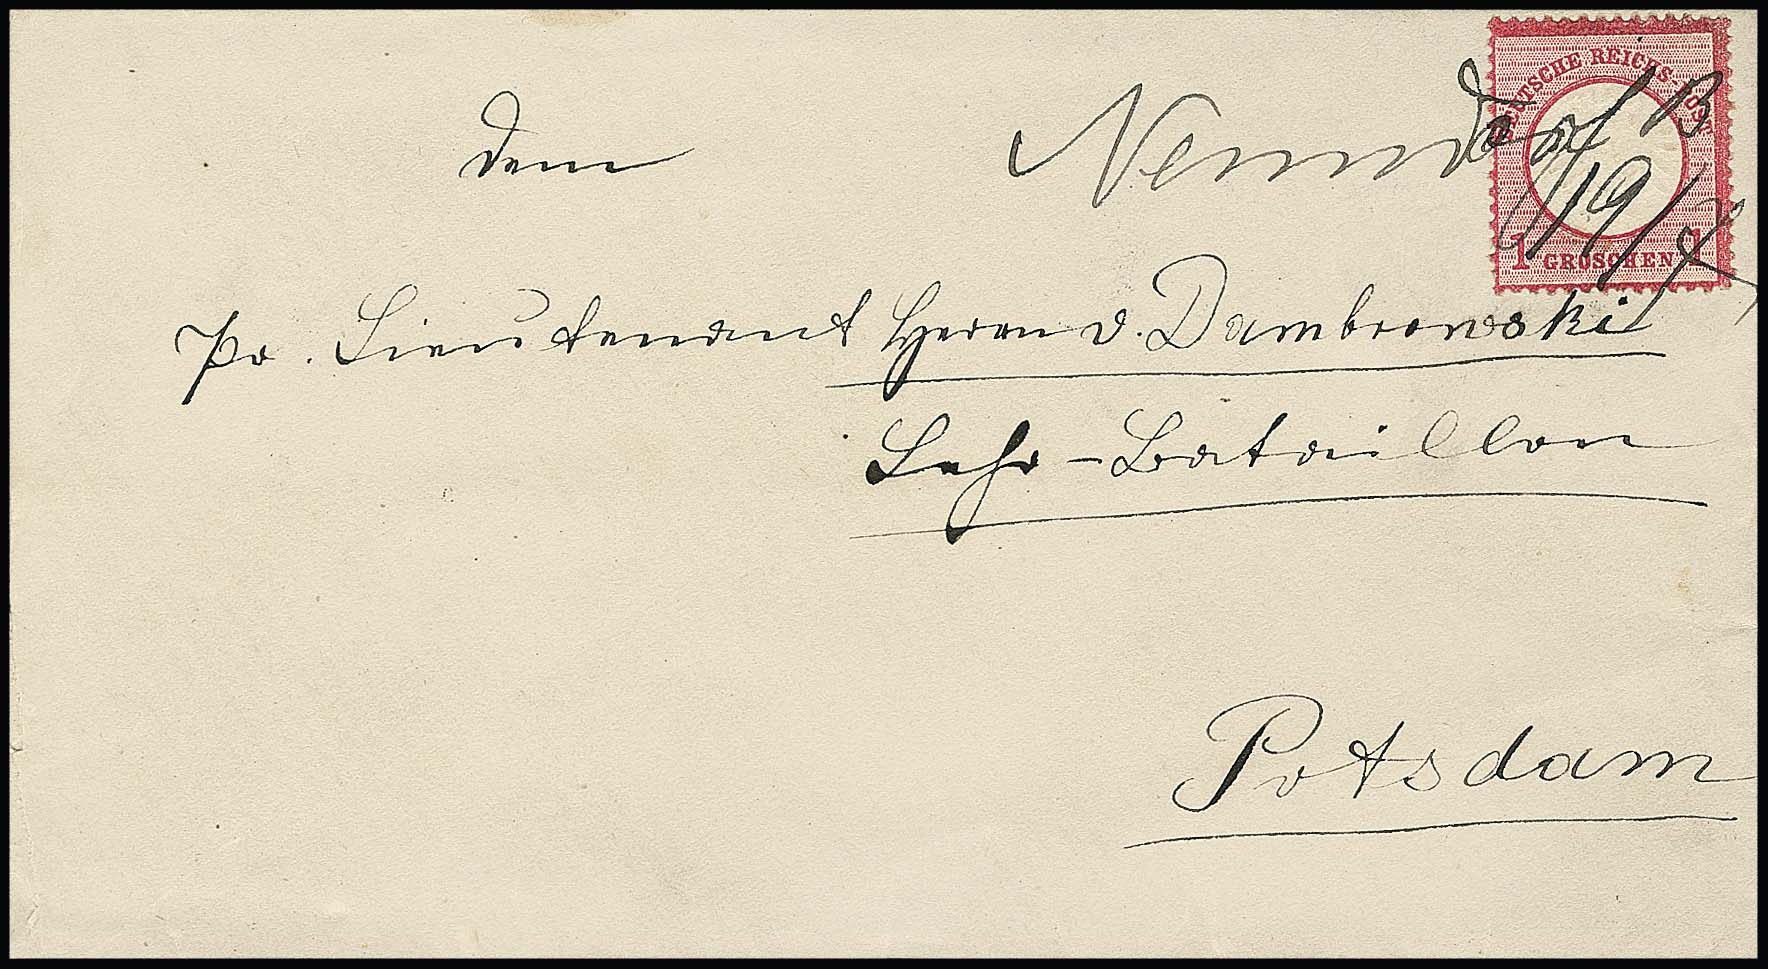 DEUTSCHE REICHS-POST
1 GROSCHEN 1
19/7
dem
Pr. Lieutenant Herrn v. Dambrowski
Lehr-Bataillon
Potsdam